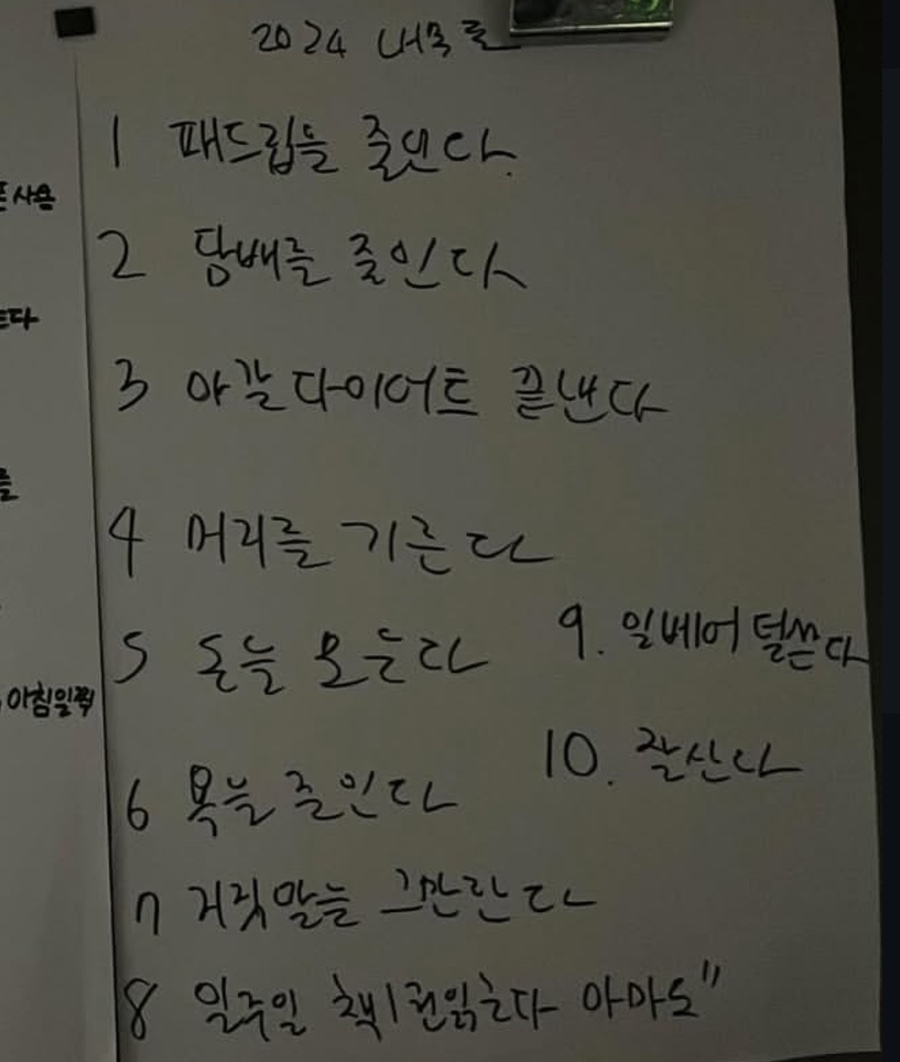 2024 내목표
1 패드립을 줄인다.
2 담배를 줄인다
3 아갈다이어트 끝낸다
4 머리를 기른다
5 돈을 모은다
6 욕을 줄인다
7 거짓말을 그만한다
8 일주일 책1권읽는다 아마도"
9. 일베어 덜쓴다
10. 잘산다
사용
다
를
아침일찍